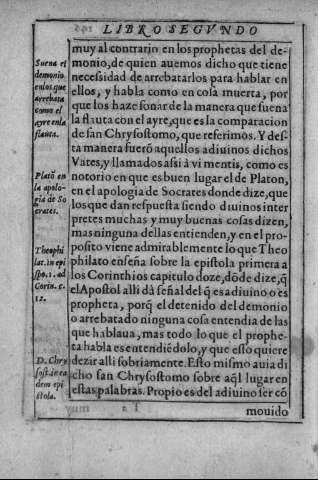 LIBRO SEGVNDO
muy al contrario en los prophetas del de-
monio, de quien auemos dicho que tiene
necessidad de arrebatarlos para hablar en
ellos, y habla como en cosa muerta, por
que los haze sonar de la manera que suena
la flauta con el ayre, que es la comparacion
de san Chrysostomo, que referimos. Y des-
ta manera fuerõ aquellos adiuinos dichos
Vates, y llamados assi à vi mentis, como es
notorio en que es buen lugar el de Platon,
en el apologia de Socrates donde dize, que
los que dan respuesta siendo diuinos inter
pretes muchas y muy buenas cosas dizen,
mas ninguna dellas entienden, y en el pro-
posito viene admirablemente lo que Theo
philato enseña sobre la epistola primera a
los Corinthios capitulo doze, dõde dize, q̃
el Apostol alli dà señal del q̃ es adiuino o es
propheta, porq̃ el detenido del demonio
o arrebatado ninguna cosa entendia de las
que hablaua, mas todo lo que el prophe-
ta habla es entendiẽdolo, y que esso quiere
dezir alli sobriamente. Esto mismo auia di
cho san Chrysostomo sobre aq̃l lugar en
estas palabras. Propio es del adiuino ser cõ
mouido
Suena el
demonio
en los que
arrebata
como el
ayre en la
flauta.
Platõ en
la apolo-
gia de So
crates.
Theophi
lat. in epi
sto. 1. ad
Corin. c.
12.
D. Chry
sost. in ea
dem epi
stola.